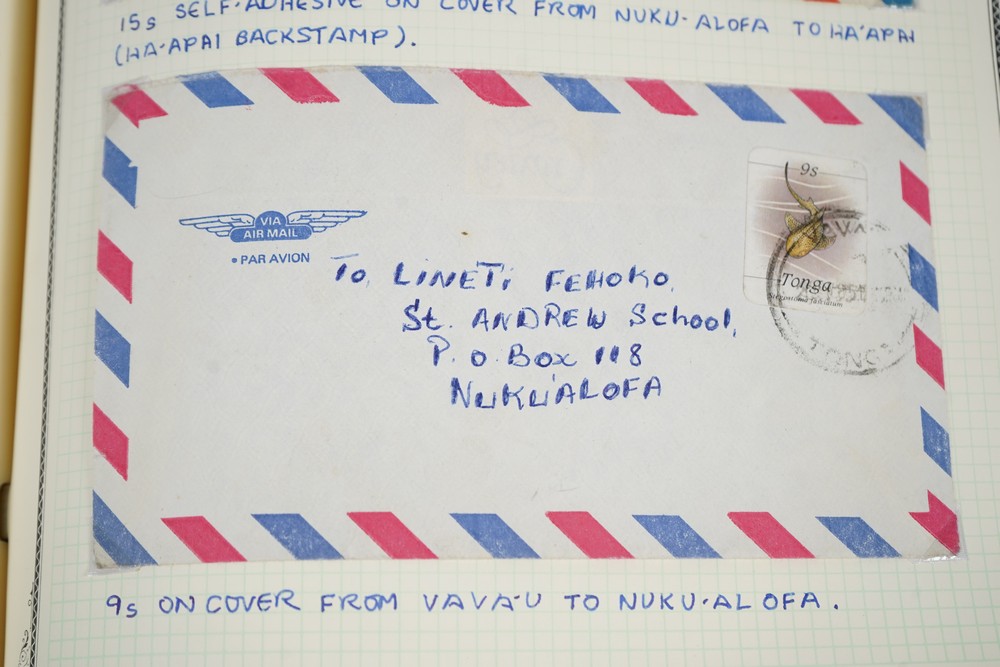 15s SELF-ADHESIVE ON COVER FROM NUKU-ALOFA TO HA'APAI
(HA-APAI BACKSTAMP).
9s
VIA
AIR MAIL
• PAR AVION
Tonga
TONGA
To, LINETI FEHOKO,
St. ANDREW School,
P.O. Box 118
NUKU'ALOFA
9s ON COVER FROM VAVA-U TO NUKU-ALOFA.